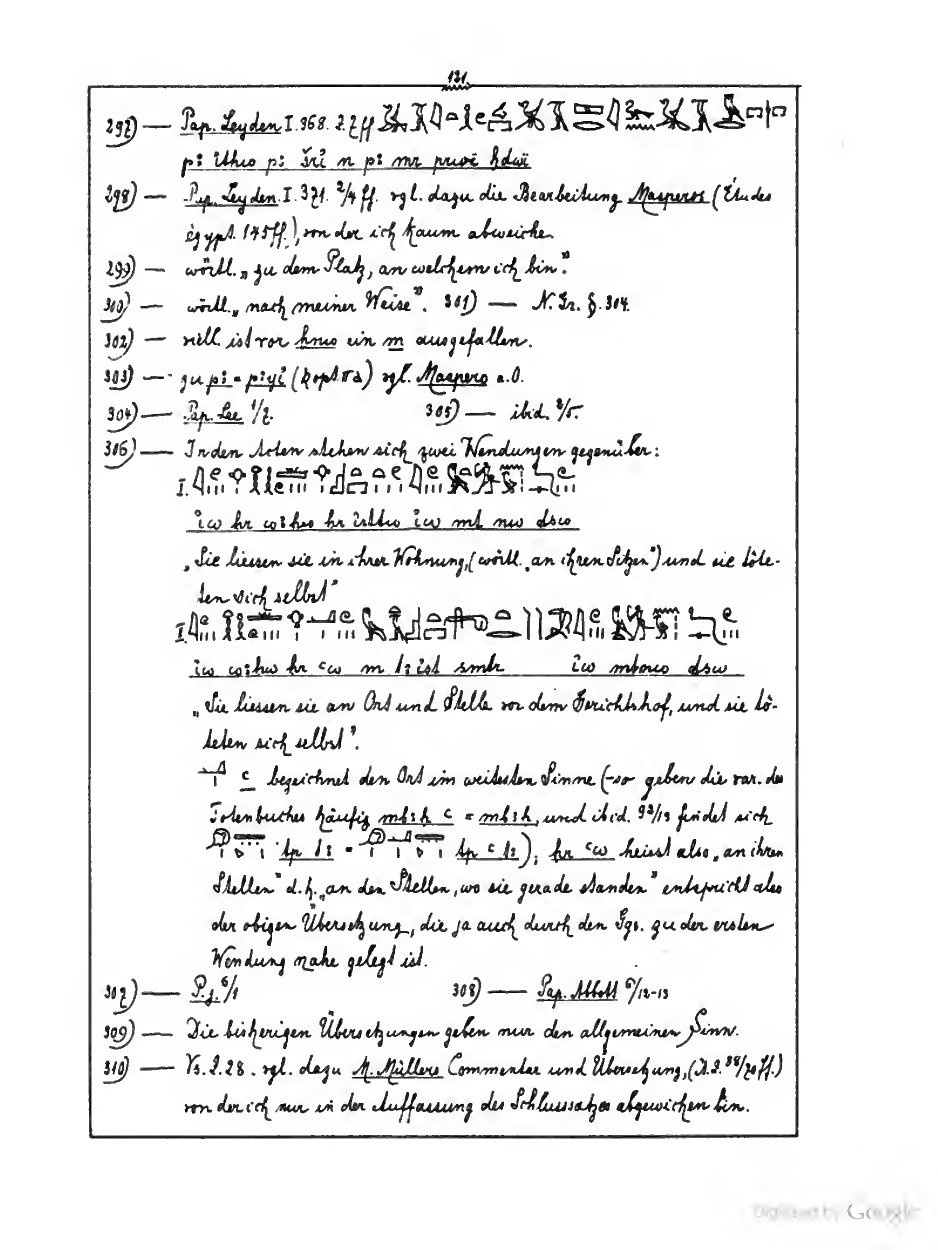 121
297) — Pap. Leyden I. 368. Z. 7 ff
298) — Pap. Leyden I. 371. 2/4 ff. vgl. dazu die Bearbeitung Masperos (Études
égypt. 145 ff.), von der ich kaum abweiche.
299) — wörtl. „zu dem Platz, an welchem ich bin."
300) — wörtl. „nach meiner Weise". 301) — N. Gr. §. 304.
302) — viell. ist vor hnw ein m ausgefallen.
303) — zu pꜣ = pꜣyỉ (kopt. ⲡⲁ) vgl. Maspero a. O.
304) — Pap. Lee 1/7. 305) — ibid. 2/5.
306) — In den Acten stehen sich zwei Wendungen gegenüber:
I.
ỉw ḥr wꜣḥw ḥr
„Sie liessen sie in ihrer Wohnung, (wörtl. „an ihren Sitzen") und sie töte-
ten sich selbst"
II.
ỉw wꜣḥw ḥr ꜥw m
„Sie liessen sie an Ort und Stelle vor dem Gerichtshof, und sie tö-
teten sich selbst".
ꜥ bezeichnet den Ort im weitesten Sinne (–so geben die var. des
Totenbuches häufig mbꜣḥ ꜥ = mbꜣḥ, und ibid. 92/13 findet sich
tp tꜣ = tp ꜥ tꜣ); ḥr ꜥw heisst also „an ihren
Stellen" d. h. „an den Stellen, wo sie gerade standen" entspricht also
der obigen Übersetzung, die ja auch durch den Ggs. zu der ersten
Wendung nahe gelegt ist.
307) — P. j. 6/1 308) — Pap. Abbott 6/12-13
309) — Die bisherigen Übersetzungen geben nur den allgemeinen Sinn.
310) — Vs. Z. 28. vgl. dazu M. Müllers Commentar und Übersetzung,
von der ich nur in der Auffassung des Schlusssatzes abgewichen bin.
Digitized by Google